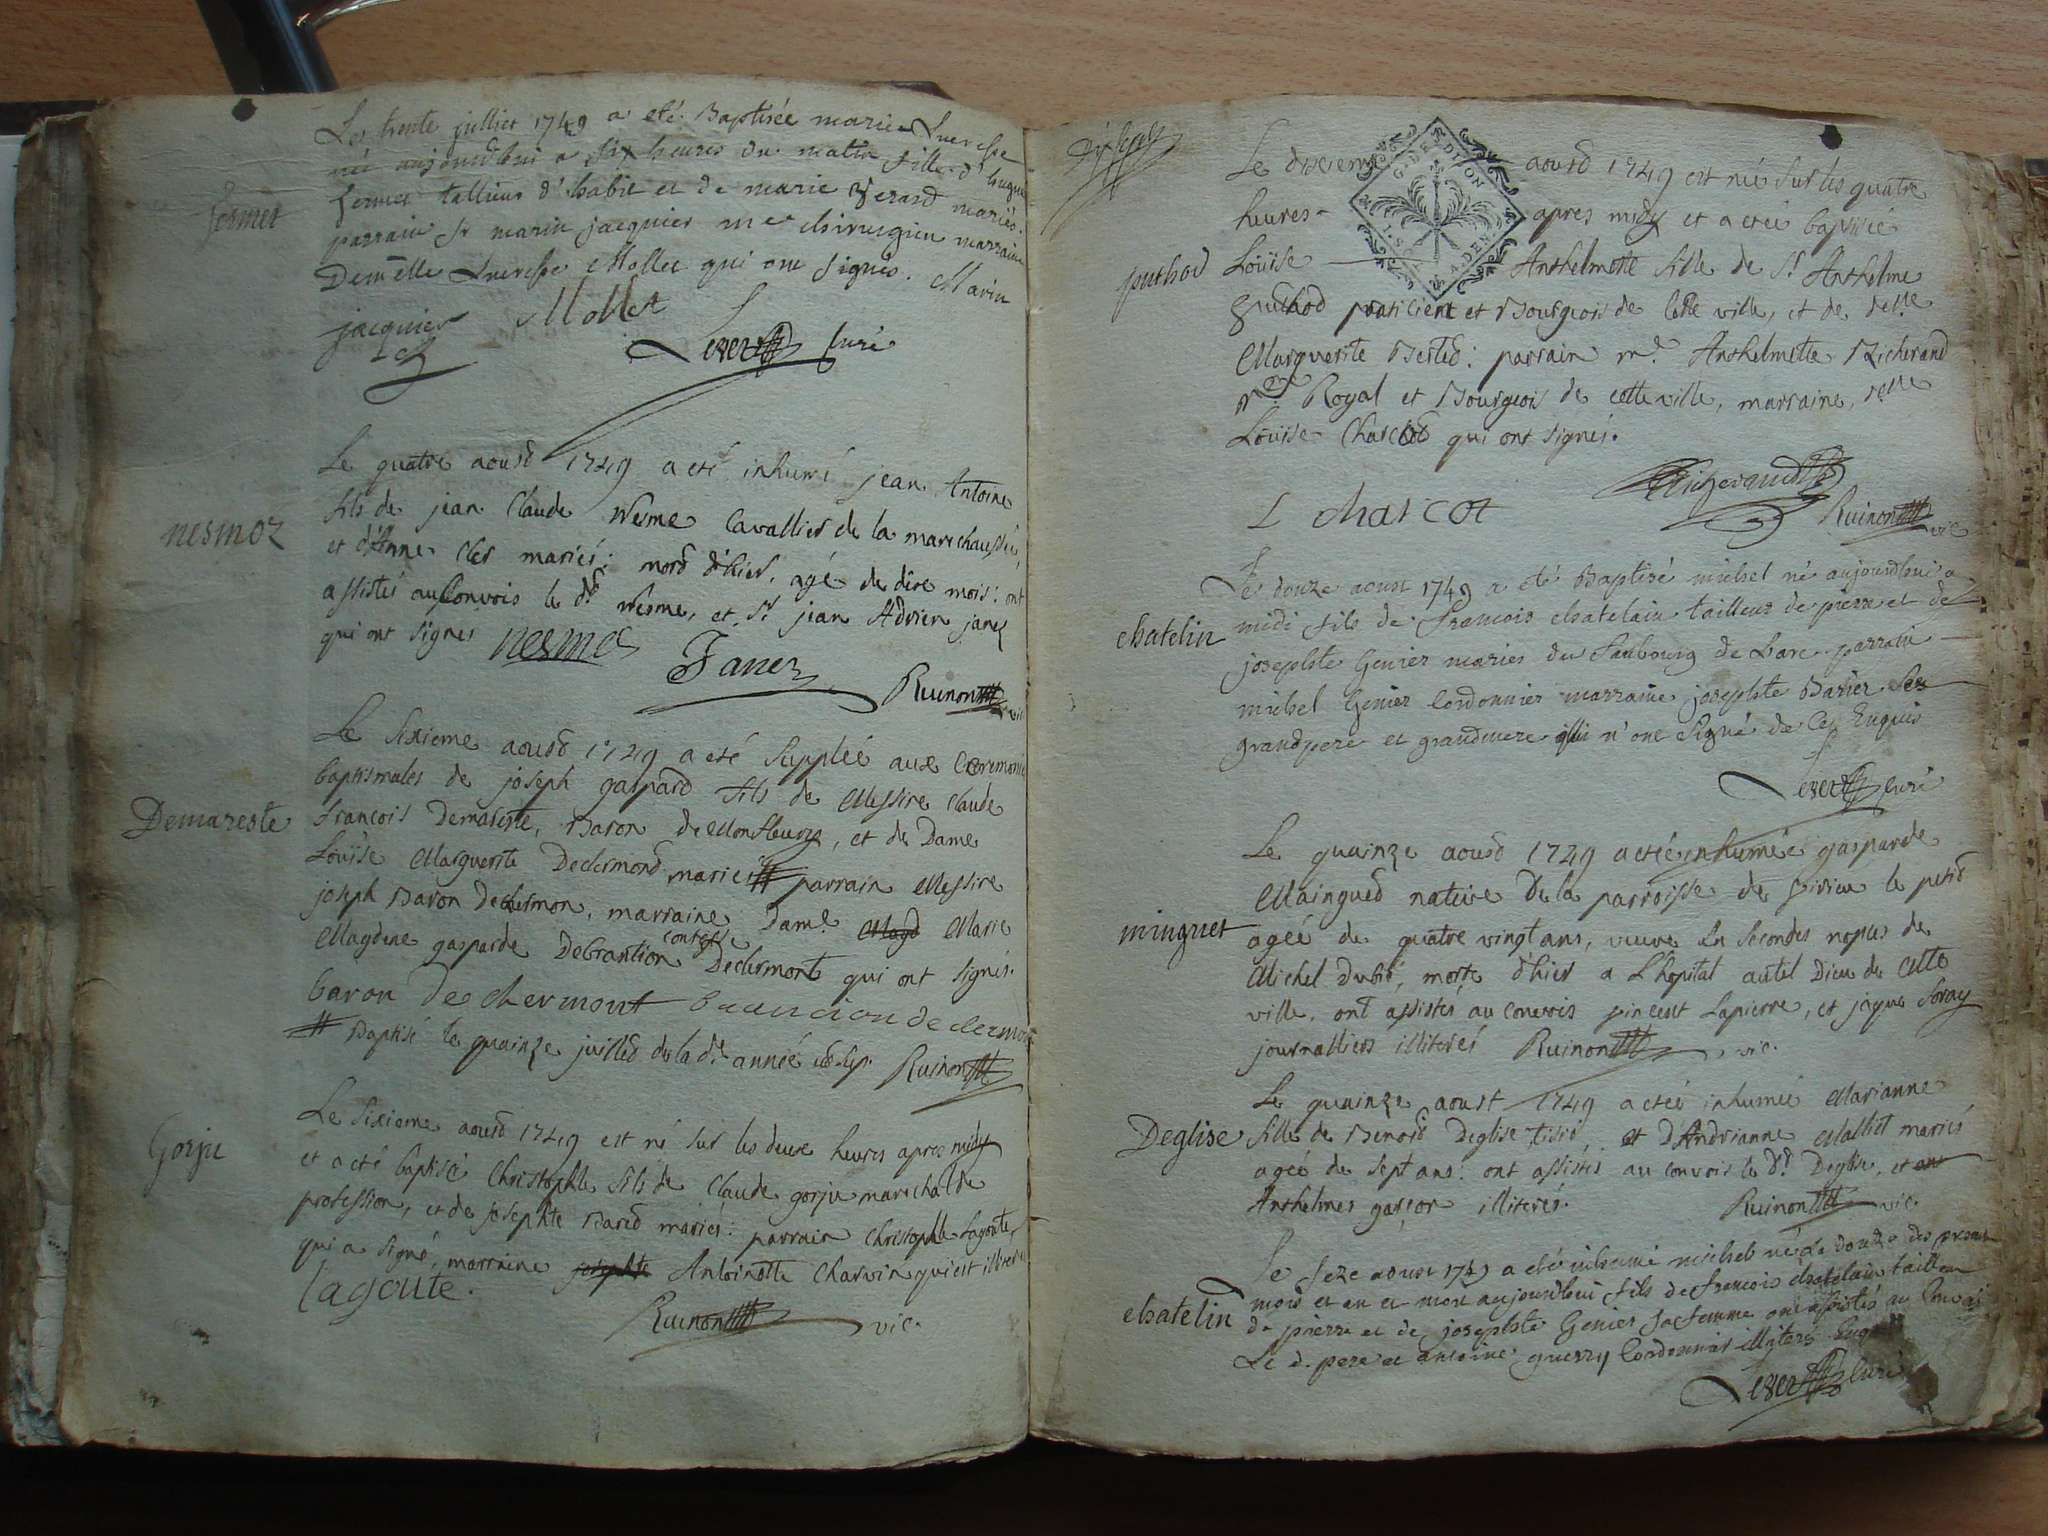 Les trente jullier 1749 a eté Baptisée marie Lucresse
née aujourdhui a six heures du matin fille d'hugue
fermet tallieur d'habit et de marie Berard mariés.
fermet
parrain Sr marin jacquier me chirurgien marraine
Demelle Lucresse Mollet qui ont signés. Marin
jacquier Mollet
curé
Le quatre aoust 1749 a eté inhumé jean Antoine
fils de jean Claude Nesme Cavallier de la marechaussée,
nesmoz
et d'Anne Cler mariés: mord d'hier, agé de dixe mois: ont
assistés au Convois le dt Nesme, et Sr jean Adrien janez
qui ont signés nesme Janez
Ruinon vic
Le sixieme aoust 1749 a eté supplée aux Ceremonie
baptismales de joseph gaspard fils de Messire Claude
Demareste
françois Demareste, Baron de Monfleury, et de Dame
Loüise Marguerite Declermond mariés # parrain Messire
joseph Baron Declermon, marraine Dame Magd Marie
Magdene gasparde Debrantion contesse Declermont qui ont signés.
baron De clermont brancion de clermont
# Baptisé le quainze juilled de la dt année Ruinon
Gorju
Le sixieme aoust 1749 est né sur les deux heures apres midy
et a eté baptisé Christophle fils de Claude gorju marechal de
profession, et de josephte Bared mariés: parrain Christophle Lagoute,
qui a signé, marraine josephte Antoinette Charvin qui est illiteré
lagoute.
Ruinon vic.
Le dixieme aoust 1749 est né sur les quatre
heures apres midy et a eteé baptisée
G. DE DIJON
puthod
Loüise Anthelmette fille de Sr Anthelme
Puthod praticient et Bourgeois de Cette ville, et de delle
Marguerite Berted: parrain mr. Anthelmette Richerand
Nre Royal et Bourgeois de cette ville, marraine, delle
Loüise Charcot qui ont signés.
L charcot Richerand
Ruinon vic
Le douze aoust 1749 a eté Baptisé michel né aujourdhui a
midi fils de francois chatelain tailleur de pierre et de
chatelin
josephte Genier maries du Faubourg de Larc parrain
michel Genier Cordonnier marraine josephte Barier ses
grandpere et grandmere qui n'ont signé de Ce Enquis
curé
Le quainze aoust 1749 a eteé inhumée gasparde
Maingued native De la parroisse de Virieu le petit
minguet
ageé de quatre vingt ans, veuve En secondes nopces de
Michel Dubié, morte d'hier a L'hopital autel Dieu de cette
ville, ont assistés au convois pincent Lapierre, et jaque Soray
journalliers illiterés Ruinon vic.
Le quainze aoust 1749 a eteé inhumée Marianne
Deglise
fille de Benoid Deglise Tisid, et d'Andrianne Malliet mariés
ageé de sept ans: ont assistés au convois le dt Deglise, et ant
Anthelmes garçon illiterés.
Ruinon vic.
Le seze aoust 1749 a eté inhumé michel né Le douze des present
mois et an et mort aujourdhui fils de francois chatelain tailleur
chatelin
de pierre et de josephte Genier sa femme ont assistés au Convoi
Le d. pere et antoine guerry Cordonnier illiterés
curé